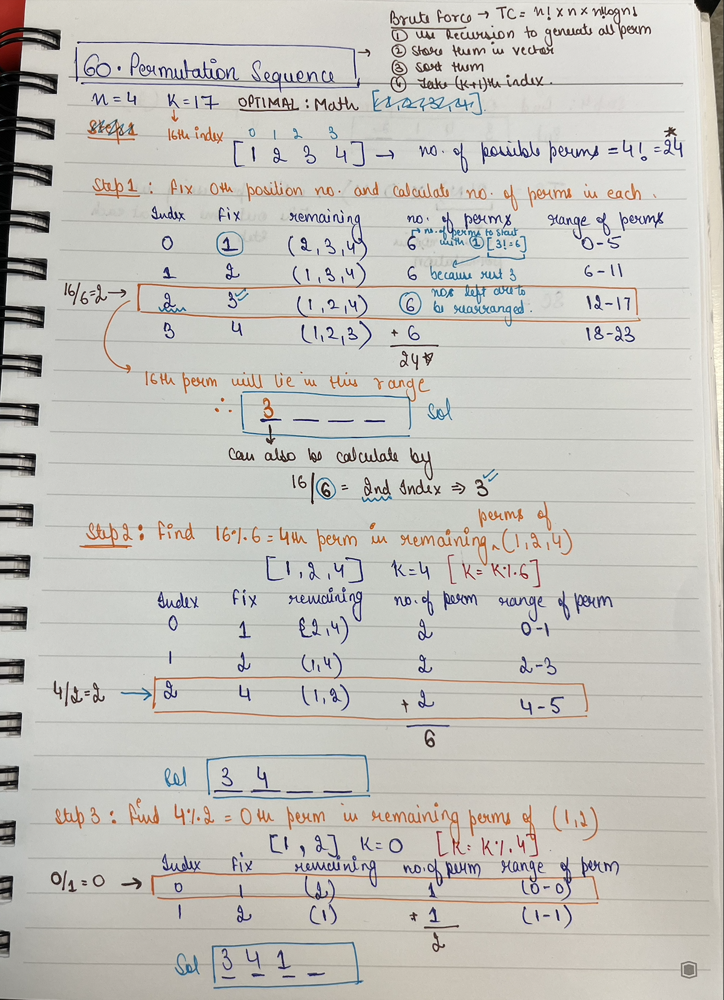 Brute Force → TC = n! × n × n!logn!
① use Recursion to generate all perm
② store them in vector
③ sort them
④ take (k+1)th index.
60. Permutation Sequence
n=4 K=17 OPTIMAL: Math
16th index
0 1 2 3
[1 2 3 4] → no. of possible perms = 4! = 24
Step 1: Fix 0th position no. and calculate no. of perms in each.
Index Fix remaining no. of perms range of perms
0 1 (2,3,4) 6 → no. of perms to start with ① [3!=6] 0-5
1 2 (1,3,4) 6 because rest 3 6-11
16/6=2 → 2 3 (1,2,4) 6 nos left are to be rearranged. 12-17
3 4 (1,2,3) + 6 18-23
24
16th perm will lie in this range
∴ 3 _ _ _ _ Sol
Can also be calculate by
16/6 = 2nd Index ⇒ 3
Step 2: Find 16%6 = 4th perm in remaining perms of (1,2,4)
[1,2,4] K=4 [K=K%6]
Index Fix remaining no. of perm range of perm
0 1 {2,4) 2 0-1
1 2 (1,4) 2 2-3
4/2=2 → 2 4 (1,2) + 2 4-5
6
Sol 3 4 _ _
Step 3: Find 4%2 = 0th perm in remaining perms of (1,2)
[1,2] K=0 [K=K%4]
Index Fix remaining no. of perm range of perm
0/1=0 → 0 1 (2) 1 (0-0)
1 2 (1) + 1 (1-1)
2
Sol 3 4 1 _